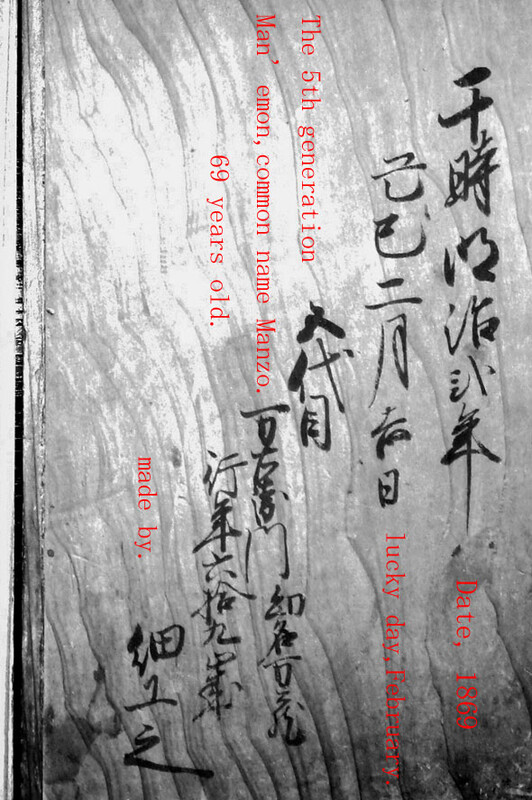 于時明治弐年
Date, 1869
己巳二月吉日
lucky day,February.
The 5th generation
五代目
Man’emon,common name Manzo.
万右衛門 幼名万蔵
69 years old.
行年六拾九歳
made by.
細工之